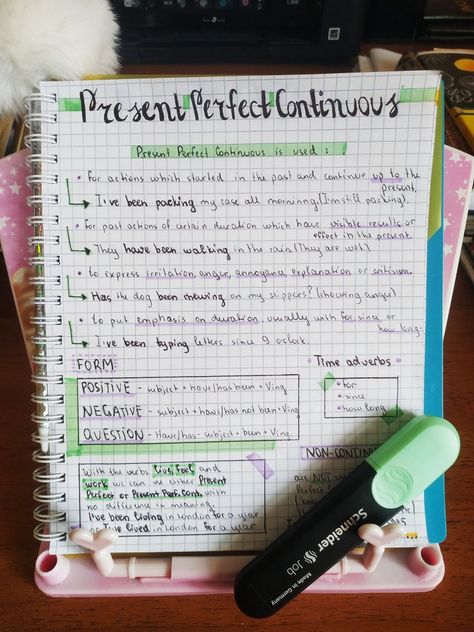 Present Perfect Continuous
Present Perfect Continuous is used :
• For actions which started in the past and continue up to the
present.
I've been packing my case all morning. (I'm still packing).
• For past actions of certain duration which have visible results or
effect in the present.
They have been walking in the rain (They are wet)
• to express irritation, anger, annoyance, explanation or criticism.
Has the dog been chewing on my slippers? (showing anger)
• to put emphasis on duration, usually with for, since or
how long.
I've been typing letters since 9 o'clock.
FORM
• Time adverbs •
POSITIVE - subject + have/has been + Ving
NEGATIVE - subject + have/has not been + Ving
QUESTION - Have/has - subject + been + Ving.
• for
• since
• how long
With the verbs, live, feel and
work we can use either Present
Perfect or Present Perf. Cont. with
no difference in meaning
I've been living in London for a year
I've lived in London for a year
NON-CONTIN
are NOT
Perfect
Schneider
Job
Made in Germany